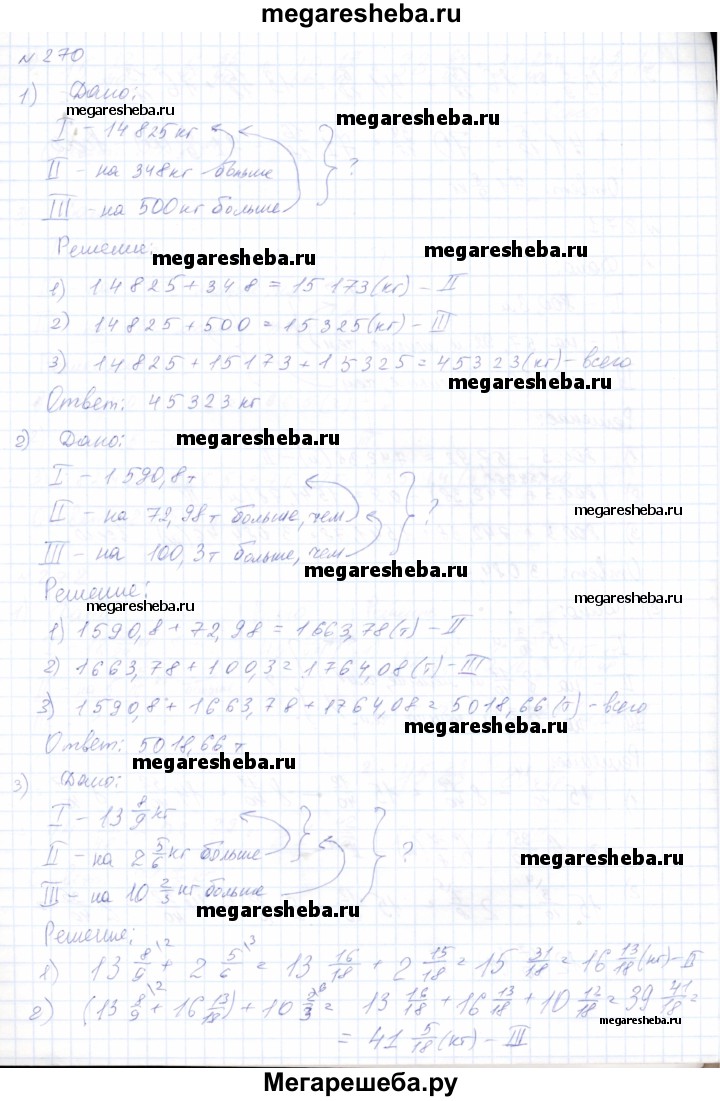 megaresheba.ru
№ 270
1) Дано:
megaresheba.ru
megaresheba.ru
I - 14825 кг
II - на 348 кг больше
?
III - на 500 кг больше
Решение:
megaresheba.ru
megaresheba.ru
1) 14825 + 348 = 15173 (кг) - II
2) 14825 + 500 = 15325 (кг) - III
3) 14825 + 15173 + 15325 = 45323 (кг) - всего
megaresheba.ru
Ответ: 45323 кг
2) Дано:
megaresheba.ru
I - 1590,8 т
II - на 72,98 т больше, чем
?
megaresheba.ru
III - на 100,3 т больше, чем
megaresheba.ru
Решение:
megaresheba.ru
megaresheba.ru
1) 1590,8 + 72,98 = 1663,78 (т) - II
2) 1663,78 + 100,3 = 1764,08 (т) - III
3) 1590,8 + 1663,78 + 1764,08 = 5018,66 (т) - всего
megaresheba.ru
Ответ: 5018,66 т
megaresheba.ru
3) Дано:
I - 13 8/9 кг
II - на 2 5/6 кг больше
?
megaresheba.ru
III - на 10 2/3 кг больше
megaresheba.ru
Решение:
1) 13 8/9 \2 + 2 5/6 \3 = 13 16/18 + 2 15/18 = 15 31/18 = 16 13/18 (кг) - II
2) (13 8/9 \2 + 16 13/18) + 10 2/3 \6 = 13 16/18 + 16 13/18 + 10 12/18 = 39 41/18 =
megaresheba.ru
= 41 5/18 (кг) - III
Мегарешеба.ру